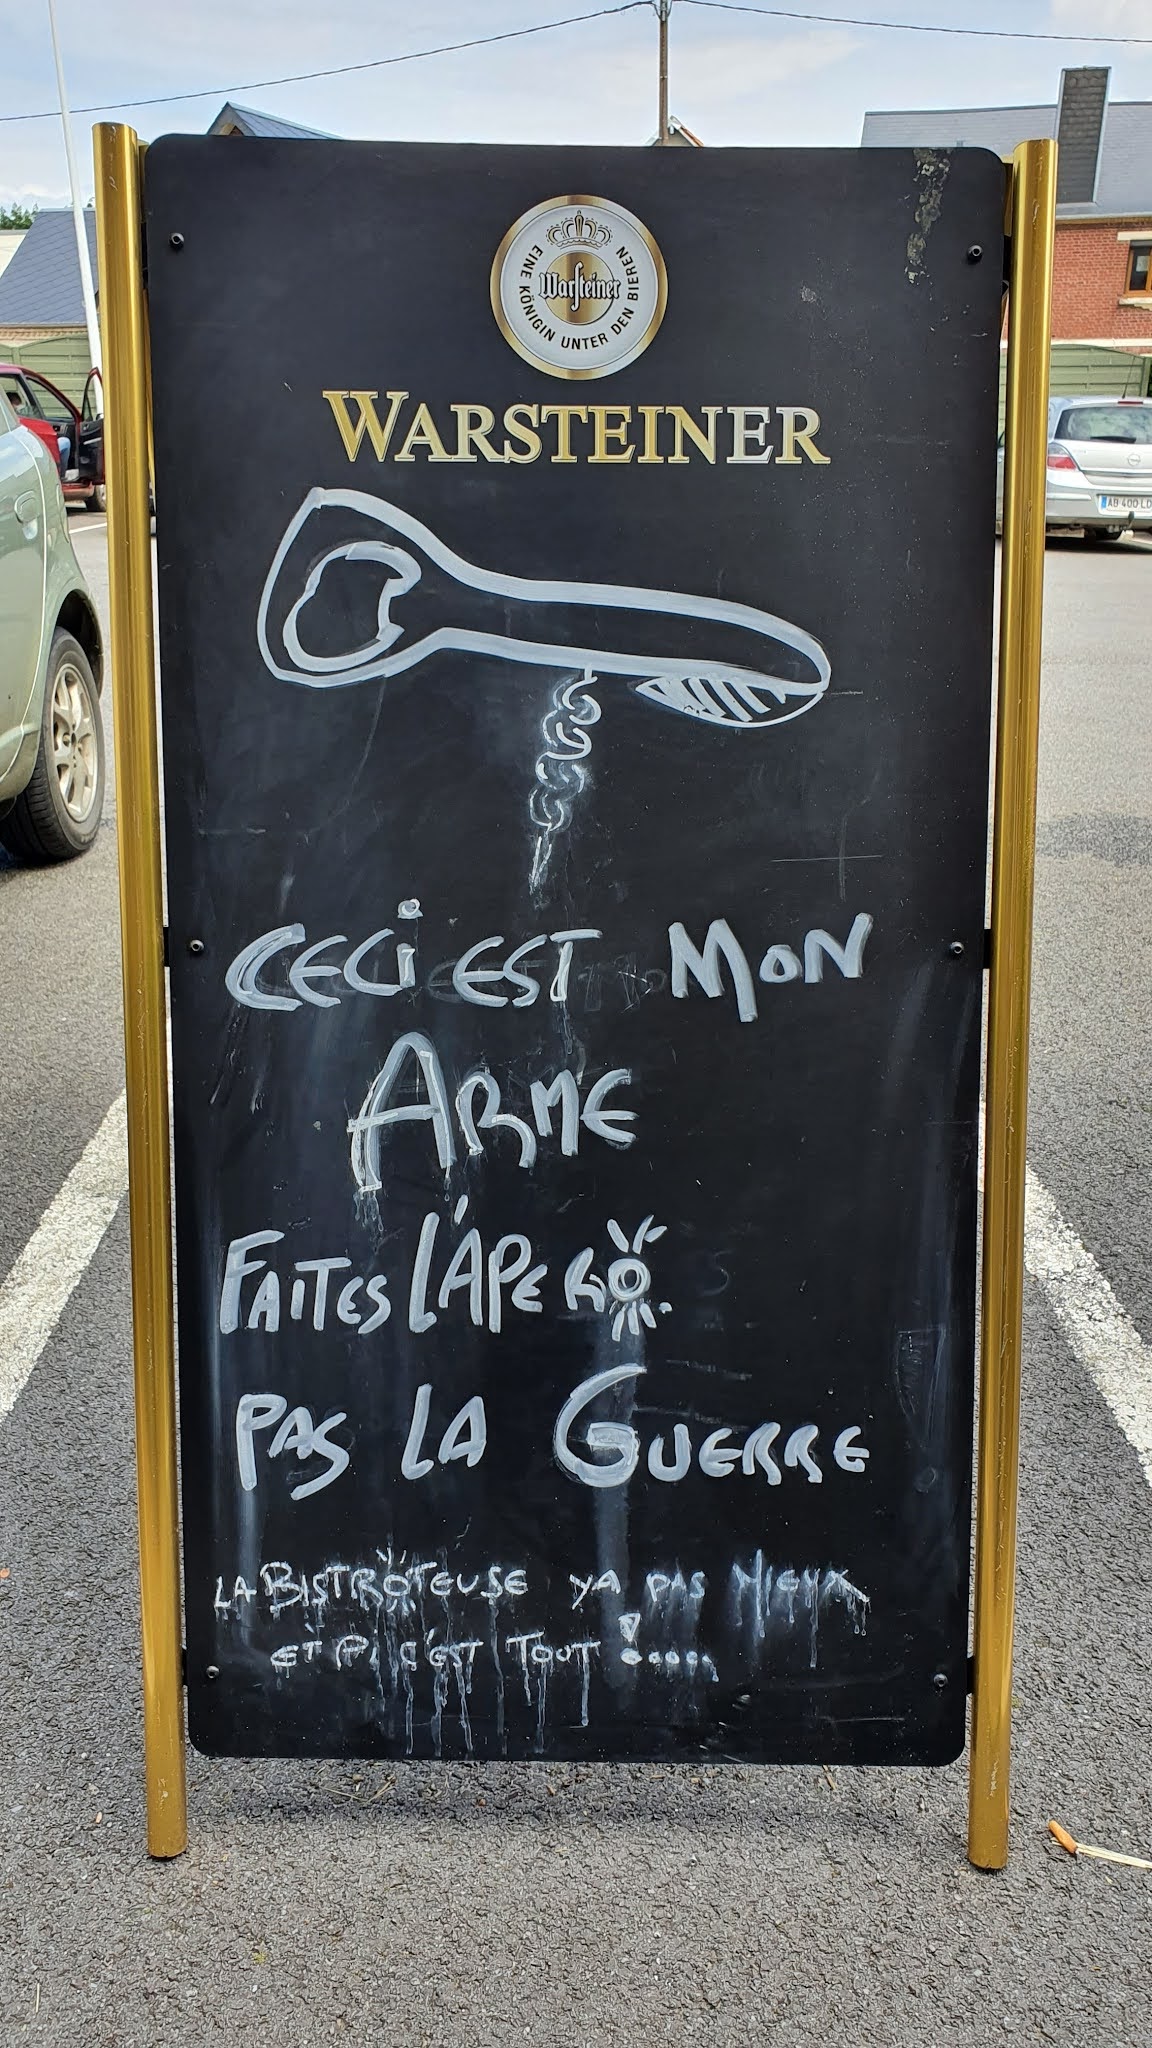 EINE KÖNIGIN UNTER DEN BIEREN
Warsteiner
WARSTEINER
CECI EST MON
ARME
FAITES L'APERO.
PAS LA GUERRE
LA BISTROTEUSE YA PAS MIEUX
ET PI C'EST TOUT !.....
AB 400 LD